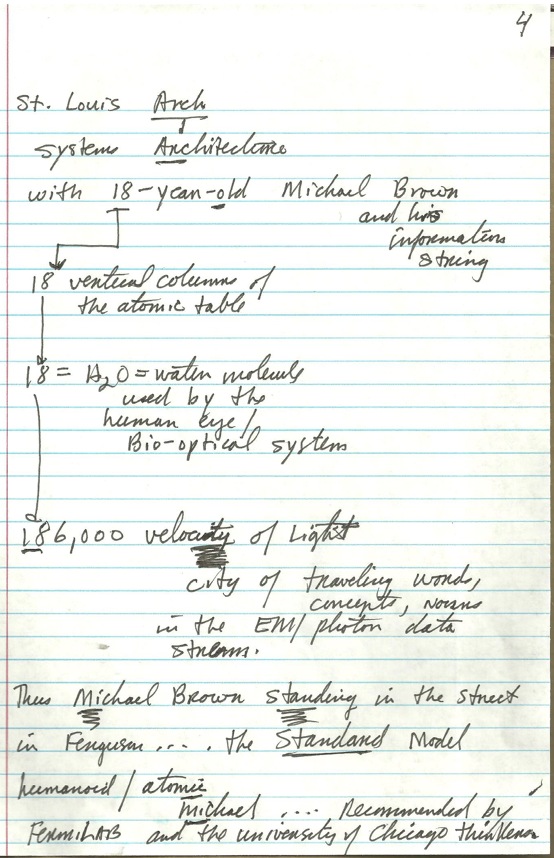 4
St. Louis Arch
systems Architecture
with 18-year-old Michael Brown
and his
information
string
18 vertical columns of
the atomic table
18 = H2O = water molecule
used by the
human eye/
Bio-optical system
186,000 velocity of Light
city of traveling words,
concepts, nouns
in the EM/photon data
stream.
Thus Michael Brown standing in the street
in Ferguson .... the Standard Model
humanoid/atomic
Michael .... Recommended by
FermiLAB and the university of Chicago thinkers